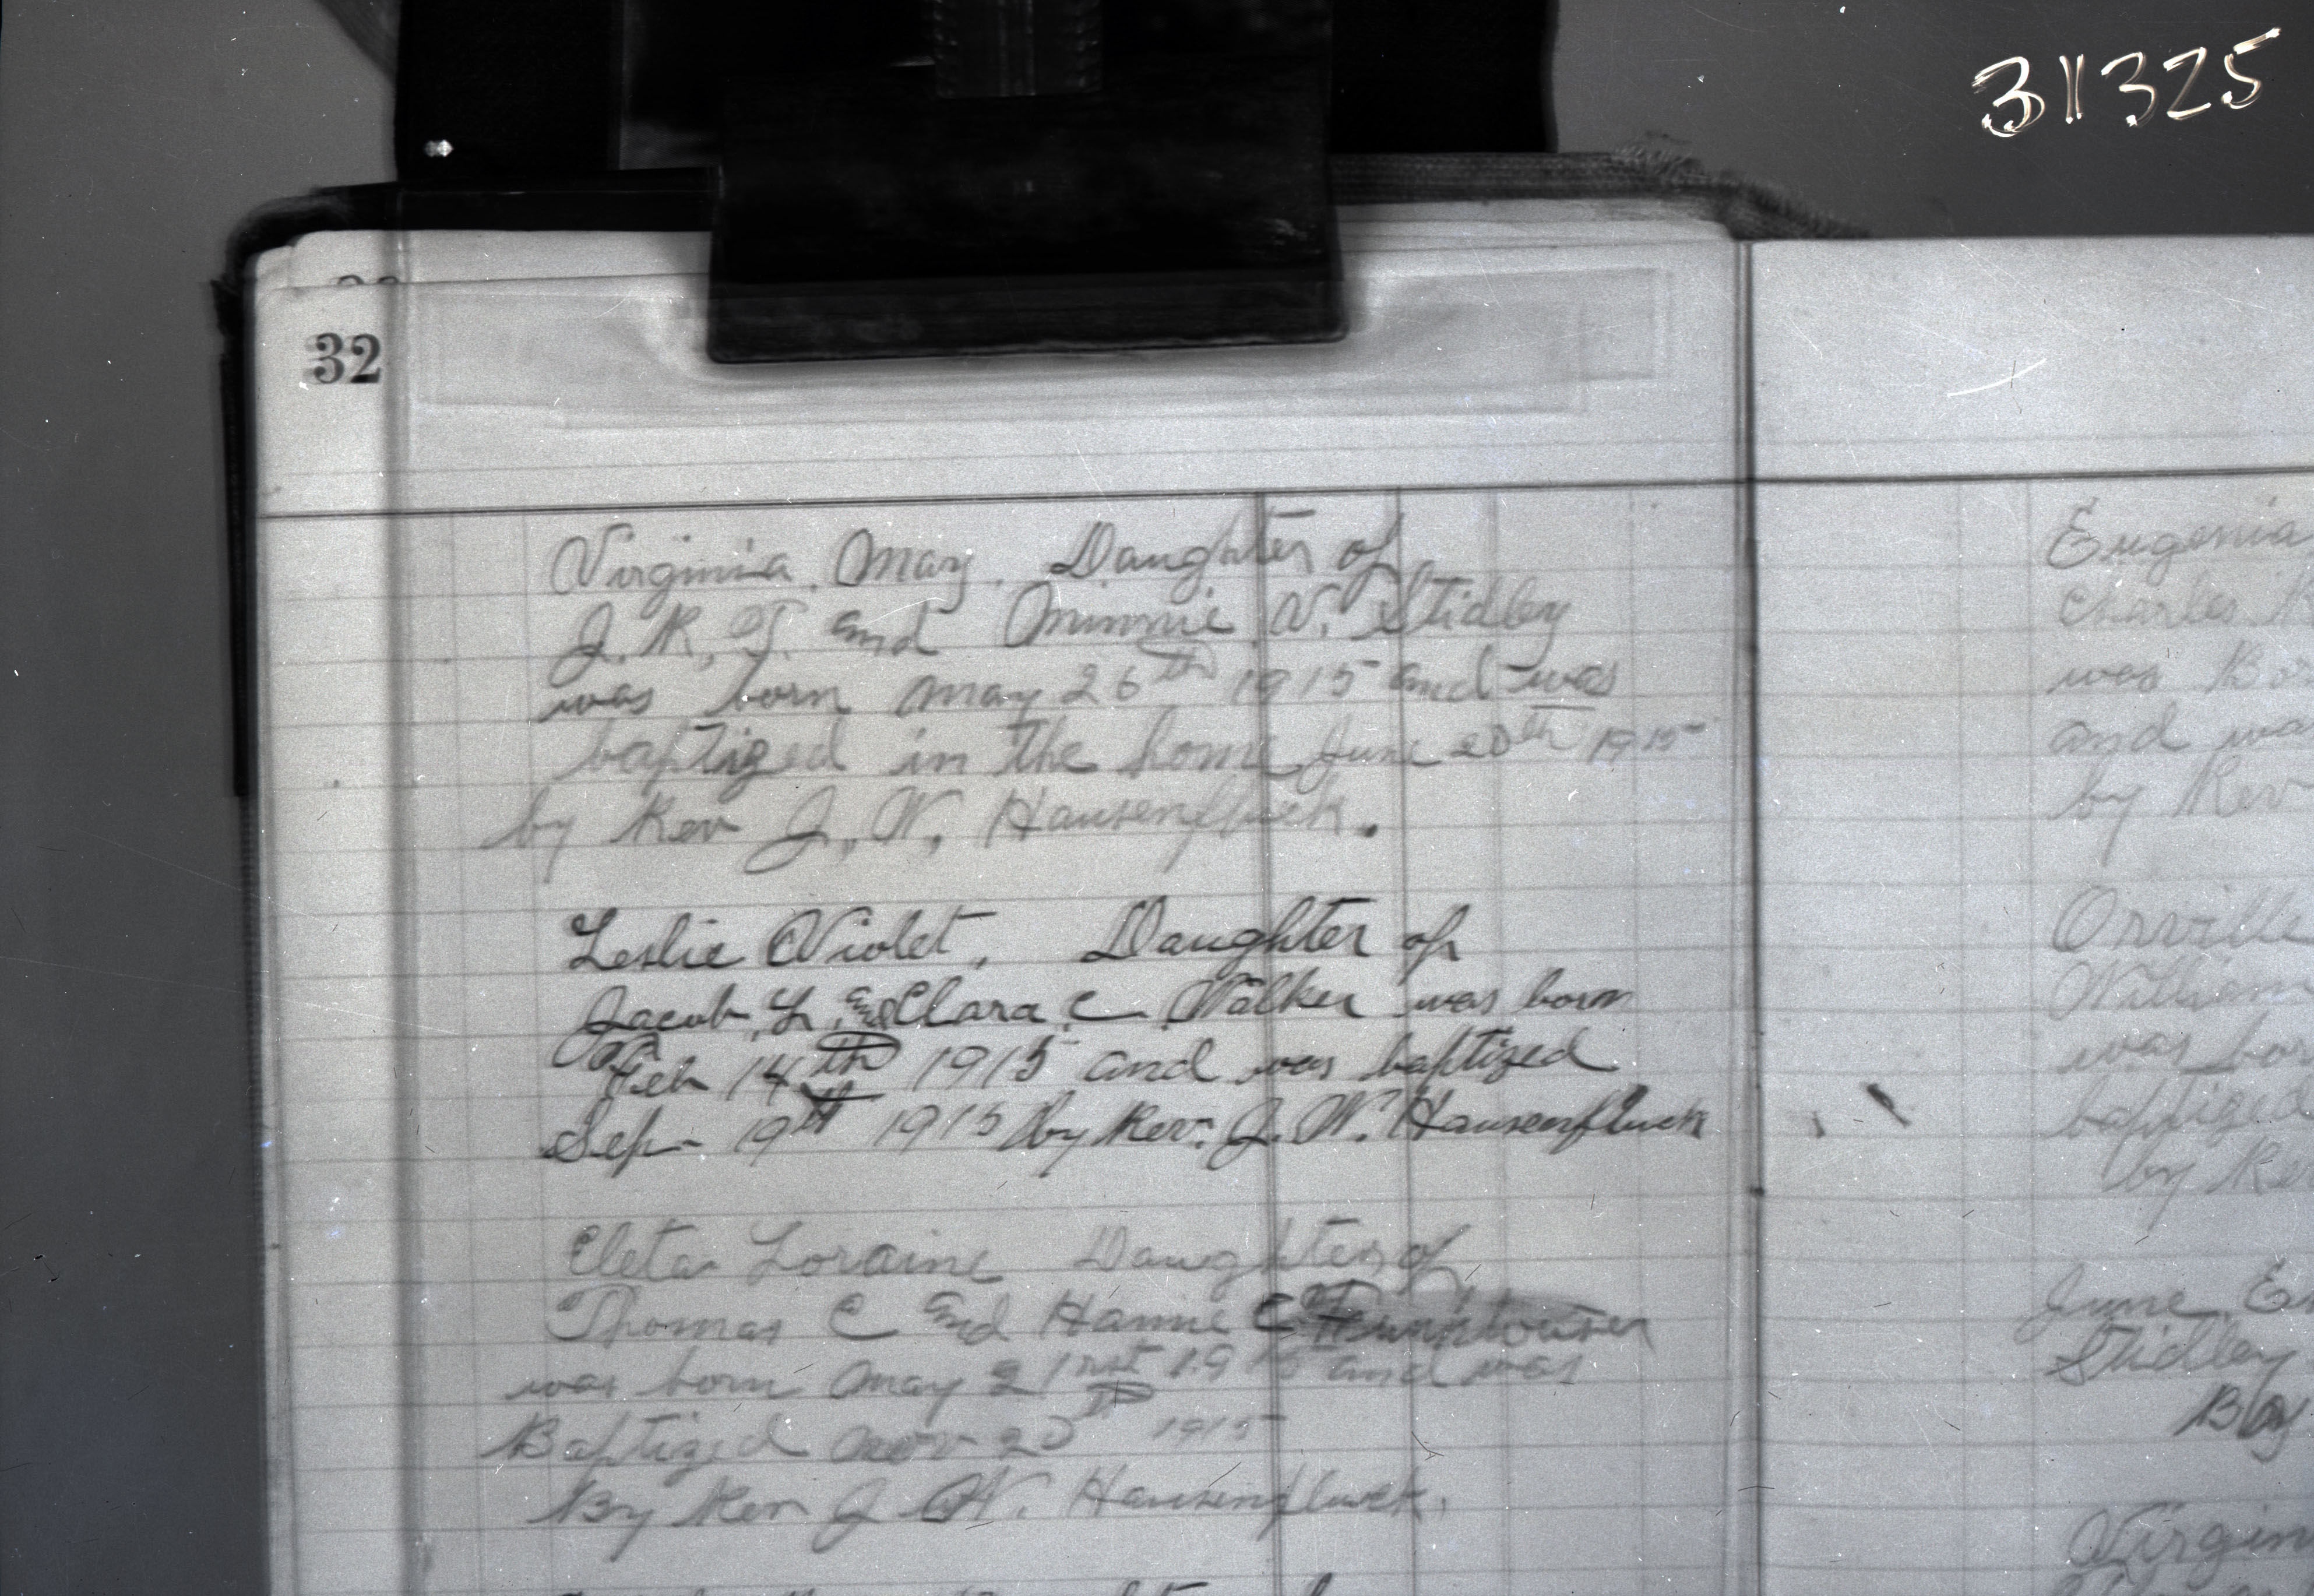 311325
32
Virginia May, Daughter of
J. R. T. and Minnie V. Stidley
was born May 26th 1915 and was
baptized in the home June 20th 1915
by Rev J. W. Hausenfluck.
Leslie Violet, Daughter of
Jacob L. and Clara C Walker was born
Feb 14th 1915 and was baptized
Sep 19th 1915 by Rev. J. W. Hausenfluck
Cleta Loraine Daughter of
Thomas C and Hannie C
was born May 21rst 1915 and was
Baptized Nov 20th 1915
By Rev J W. Hausenfluck.
Eugenia
Charles
was Bor
and was
by Rev
Orville
William
was bor
baptized
by Re
June E
Stidley
Virgin